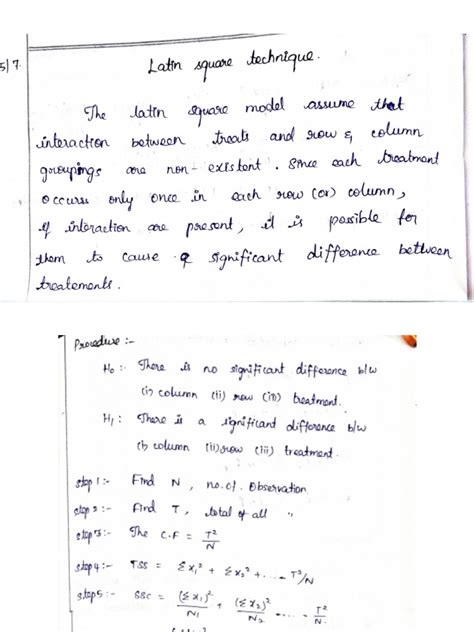 5|7.
Latin square technique.
The latin square model assume that
interaction between treats and row & column
groupings are non-existent. Since each treatment
occurs only once in each row (or) column,
if interaction are present, it is possible for
them to cause a significant difference between
treatements.
Procedure :-
H₀ :- There is no significant difference b/w
(i) column (ii) row (iii) treatment.
H₁ : There is a significant difference b/w
(i) column (ii) row (iii) treatment.
step 1 :- Find N, no. of. Observation
step 2 :- Find T, total of all "
step 3 :- The C.F = T²/N
step 4 :- TSS = Σx₁² + Σx₂² + ... - T²/N
step 5 :- SSC = (Σx₁)²/N₁ + (Σx₂)²/N₂ .... - T²/N